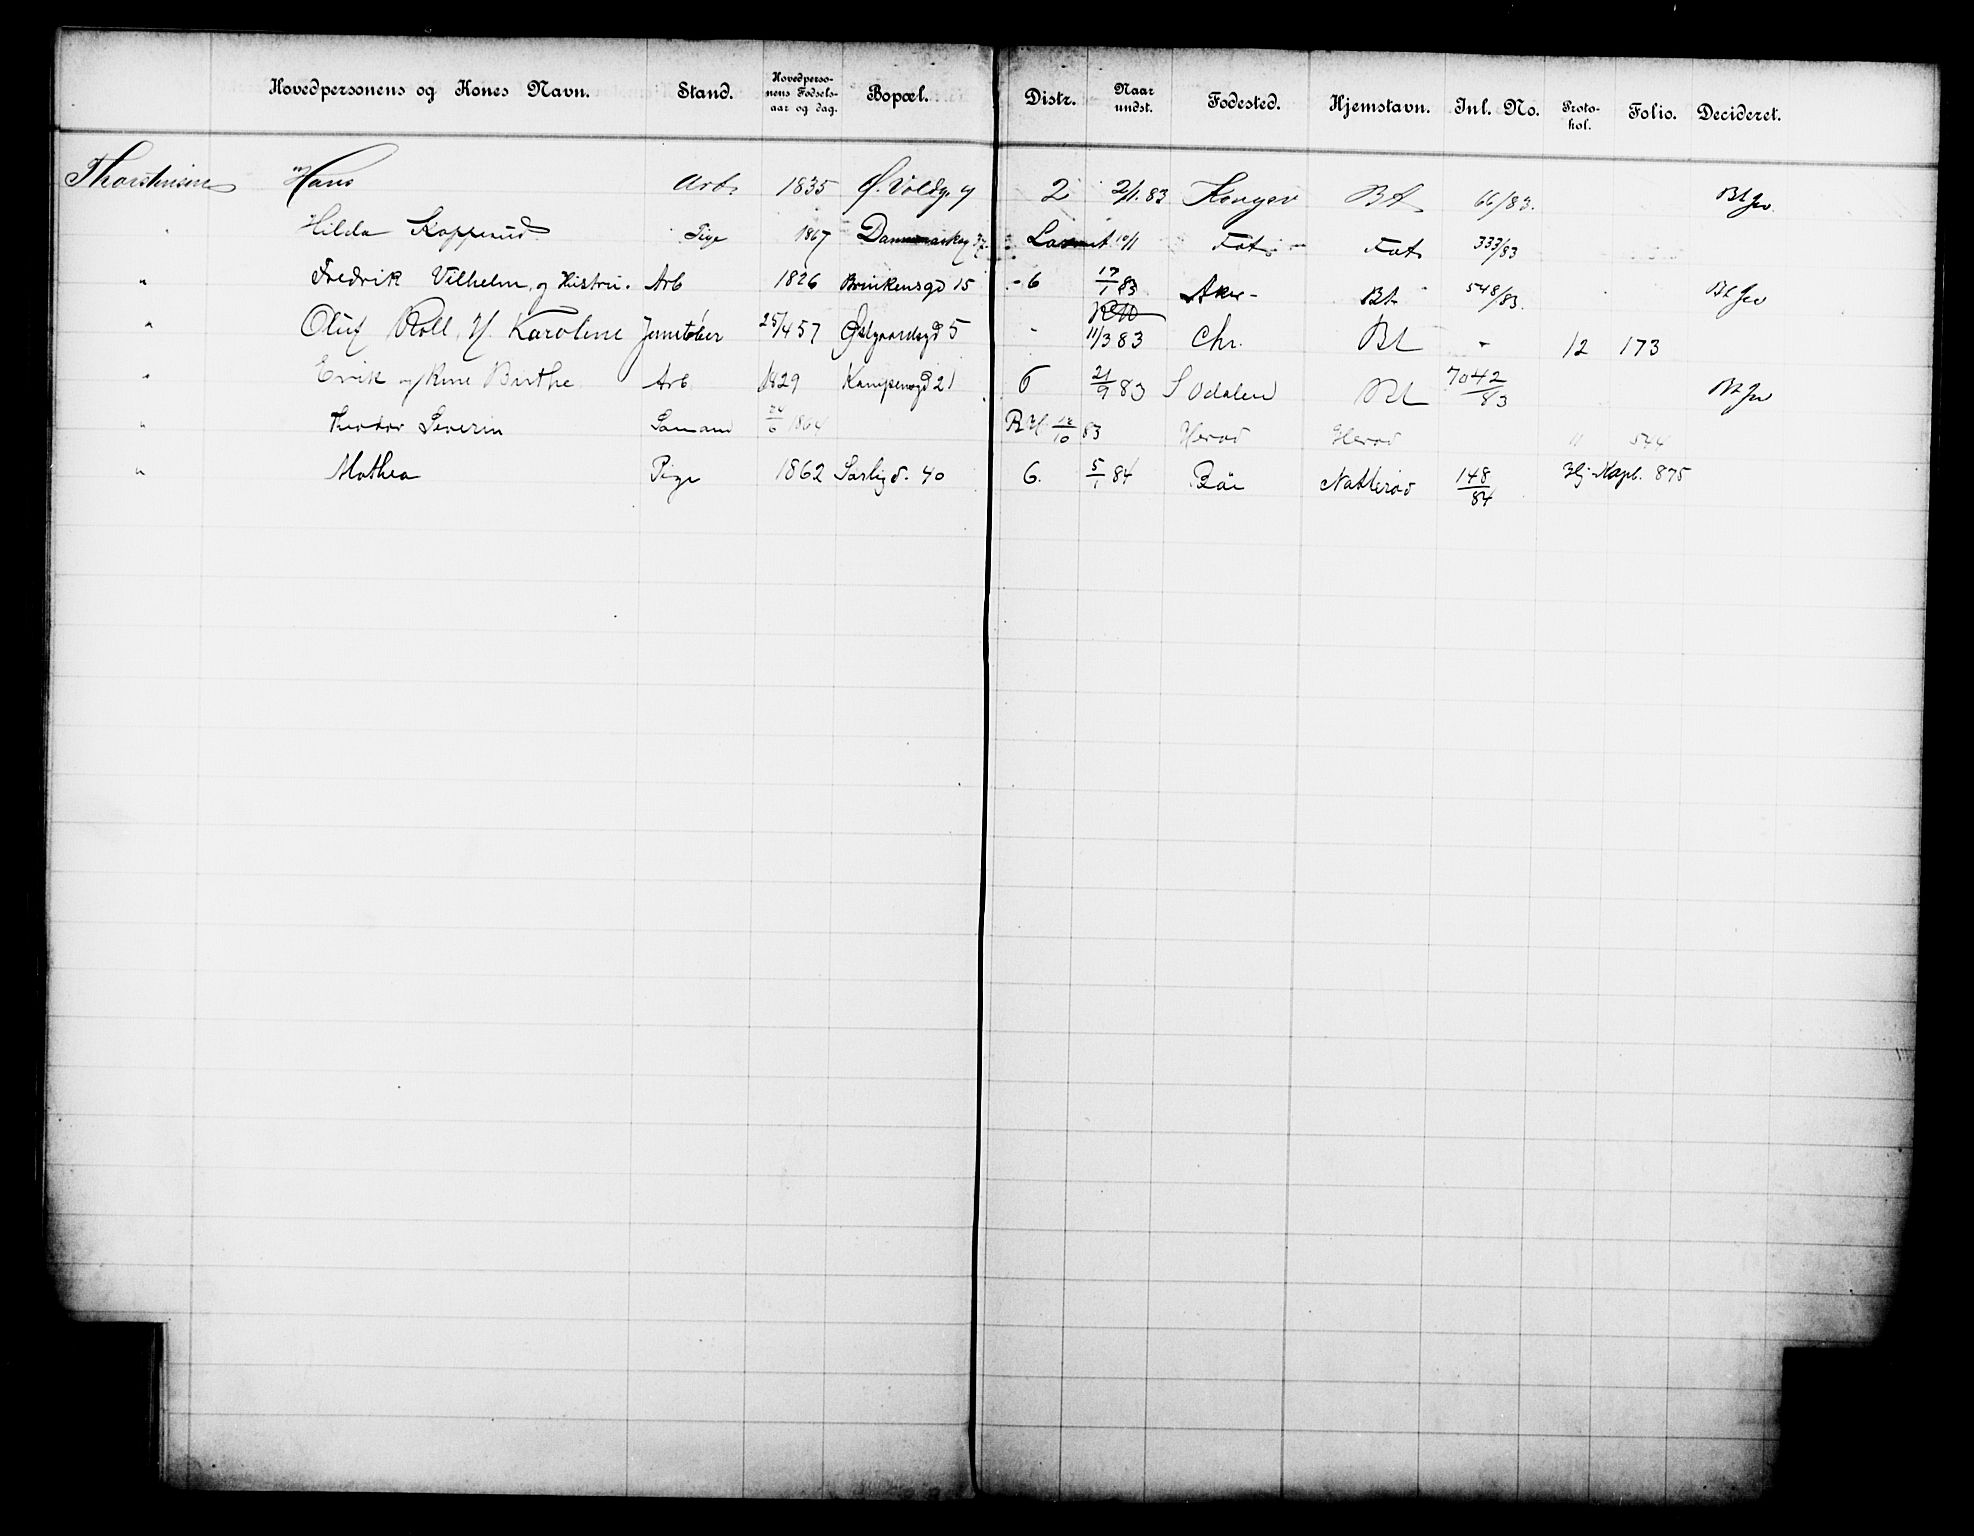 Hovedpersonens og Kones Navn. Stand. Hovedpersonens Fødselsaar og dag. Bopæl. Distr. Naar undst. Fødested. Hjemstavn. Inl. No. Protokol. Folio. Decideret.
Thorstensen Hans Arb. 1835 Ø. Voldg. 7 2 2/1. 83 Bt 66/83.
Hilda Kopperud Pige 1867 10/1 333/83
" Fredrik Vilhelm og Hustru. Arb 1826 Brinkensgd 15 - 6 17/1 83 Aker Bt 548/83.
" Oluf Roll, H. Karoline Jernstøber 25/4 57 Østgaardsgd 5 " 11/3 83 Chr. Bt " 12 173
" Erik og Kone Birthe Arb 1829 Kampensgd 21 6 21/9 83 S Odalen Bt 7042/83
" Theodor Severin Sømand 24/6 1864 RH 12/10 83 11 544
" Mathea Pige 1862 Sørligd. 40 6. 5/1 84 148/84 875